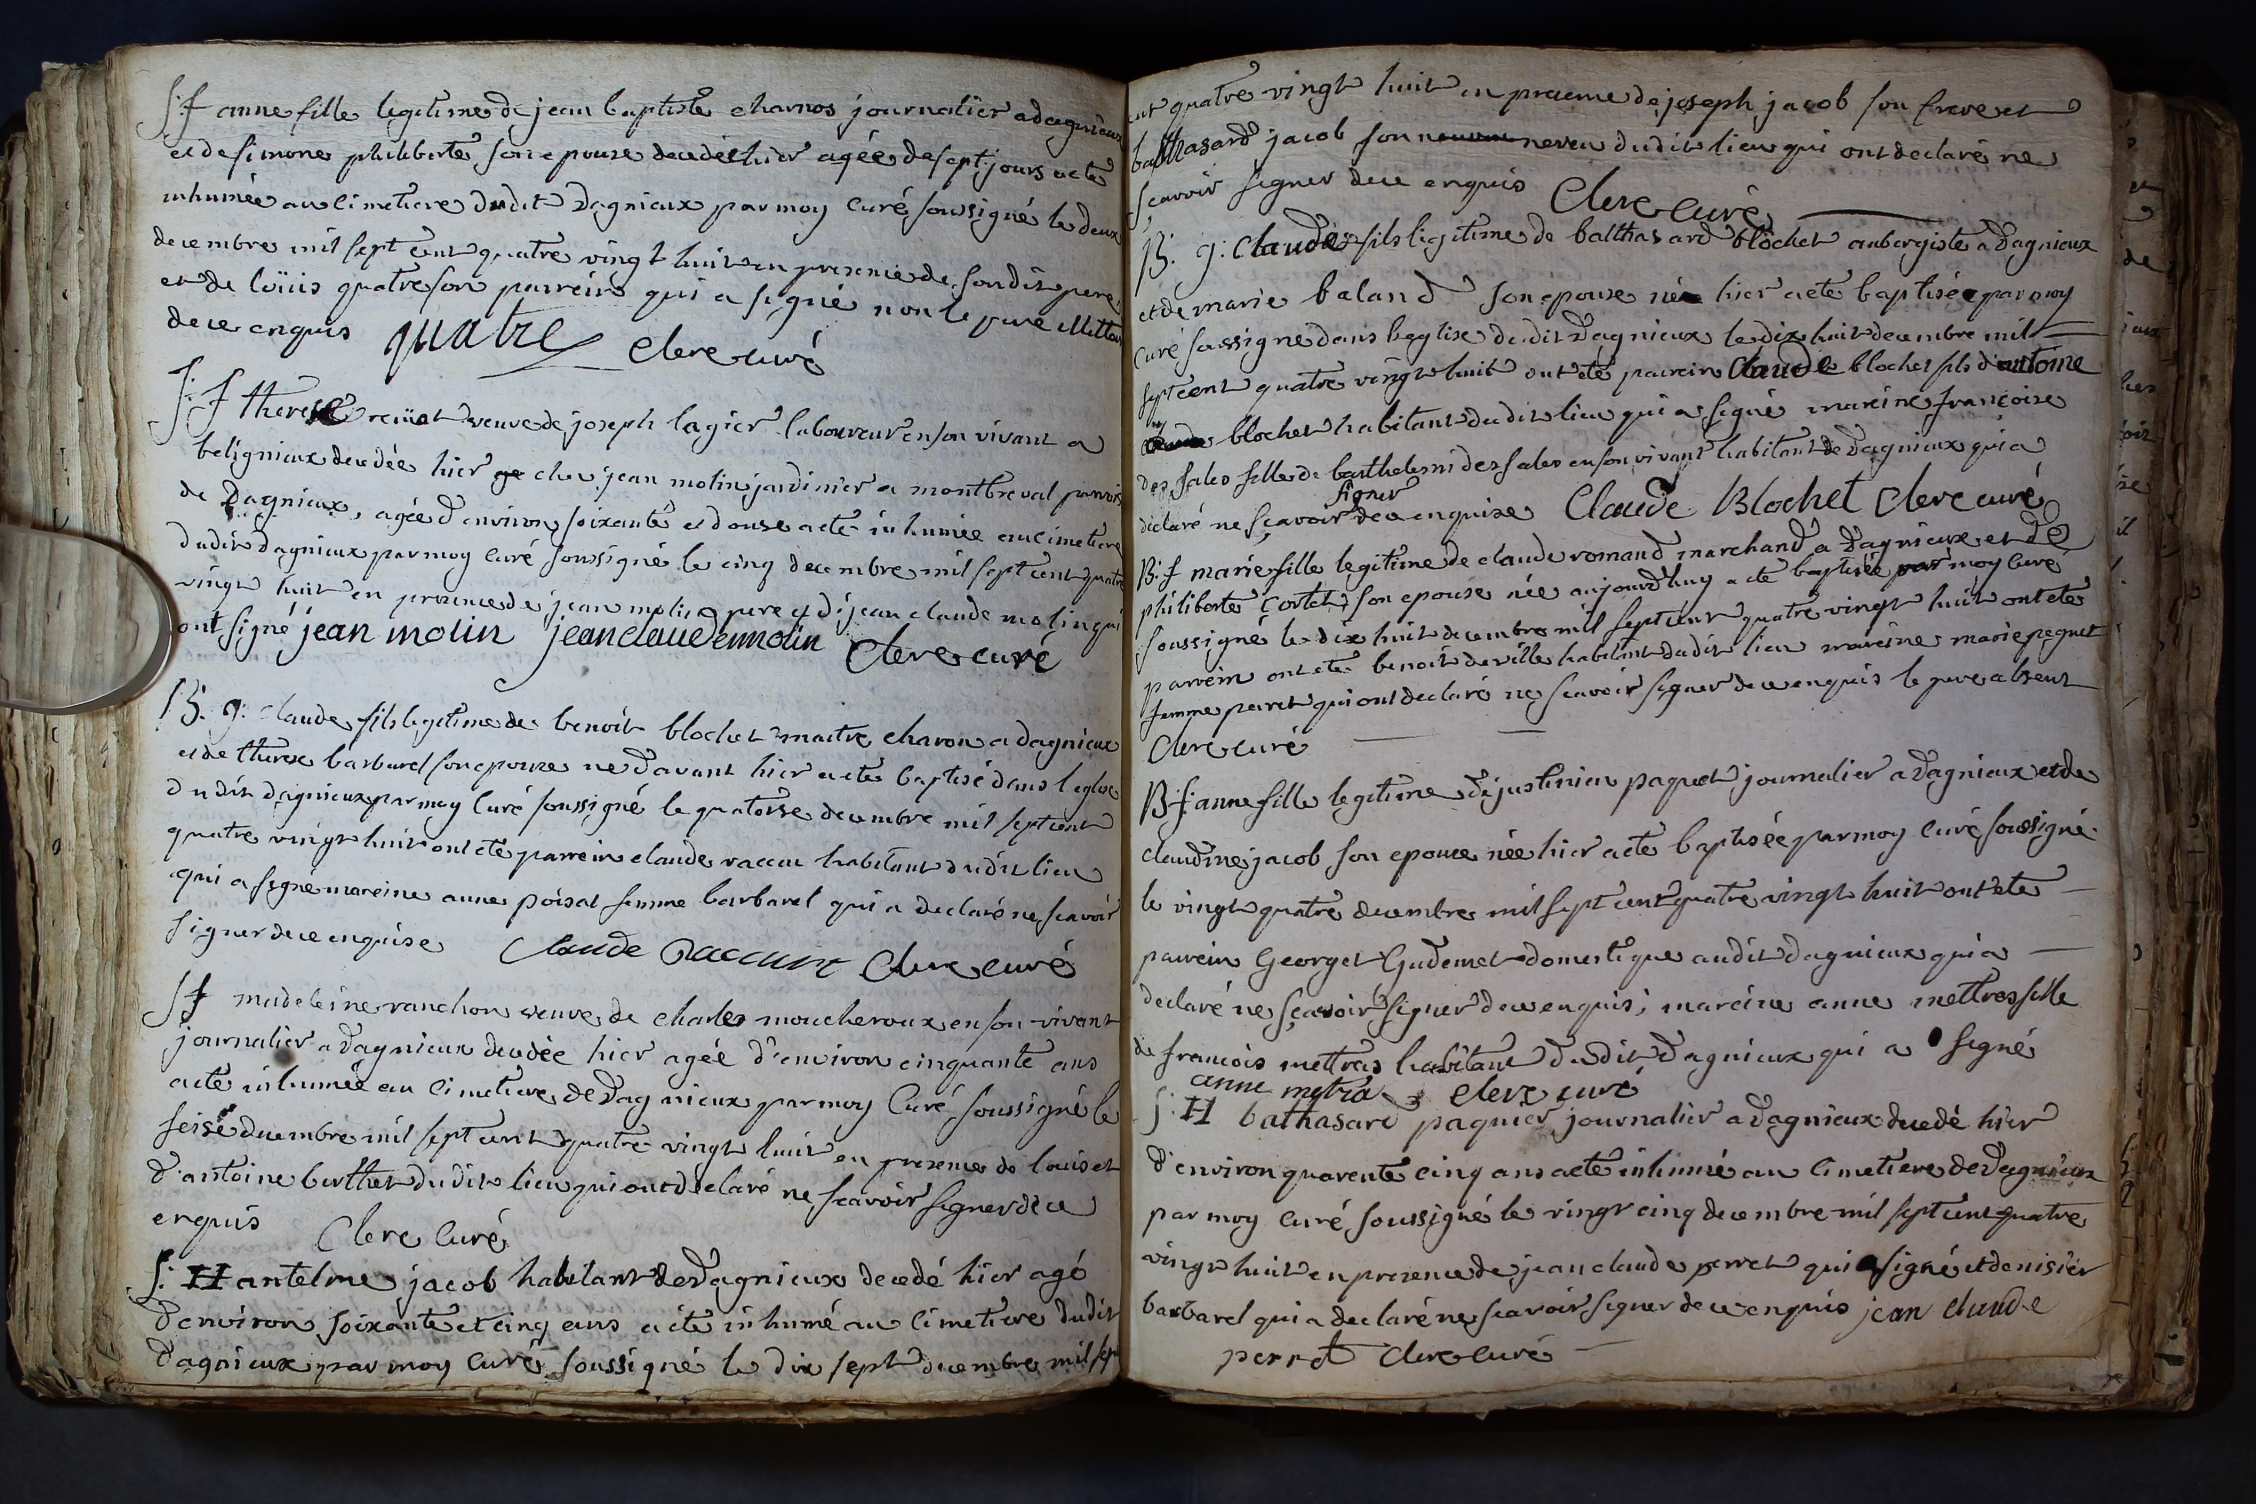 S: f anne fille legitime de jean baptiste charnos journalier a dagnieux
et de simone philiberte son epouse decedée hier agée de sept jours a eté
inhumée au cimetiere dudit Dagnieux par moy curé soussigné le deux
decembre mil sept cent quatre vingt huit en presence de son dit pere
et de loüis quatre son parrein qui a signé non le pere illettré
de ce enquis quatre Clerc curé
S: f therese veuve de joseph lagier laboureur en son vivant a
belignieux decedée hier chez jean molin jardinier a montbreval paroisse
de Dagnieux, agée d'environ soixante et douse a eté inhumée au cimetiere
dudit dagnieux par moy curé soussigné le cinq decembre mil sept cent quatre
vingt huit en presence de jean molin pere et de jean claude molin qui
ont signé jean molin jean claude molin Clerc curé
B. g: Claude fils legitime de benoit blochet maitre charon a dagnieux
et de therese barbarel son epouse né d'avant hier a eté baptisé dans l'eglise
dudit dagnieux par moy curé soussigné le quatorse decembre mil sept cent
quatre vingt huit ont eté parrein claude raccur habitant dudit lieu
qui a signé mareine anne poisat femme barbarel qui a declaré ne scavoir
signer de ce enquise Claude Raccurt Clerc curé
S f madeleine ranchon veuve de charles moucheroux en son vivant
journalier a Dagnieux decedée hier agée d'environ cinquante ans
a eté inhumée au cimetiere de Dagnieux par moy Curé soussigné le
seise decembre mil sept cent quatre vingt huit en presence de louis et
d'antoine berthet dudit lieu qui ont declaré ne scavoir signer de ce
enquis Clerc Curé
S: H antelme jacob habitant de Dagnieux decedé hier agé
d'environ soixante et cinq ans a eté inhumé au cimetiere dudit
Dagnieux par moy curé soussigné le dix sept decembre mil sept
cent quatre vingt huit en presence de joseph jacob son frere et
balthasard jacob son neveu dudit lieu qui ont declaré ne
scavoir signer de ce enquis Clerc curé
B: g: Claude fils legitime de balthasard blochet aubergiste a Dagnieux
et de marie baland son epouse né hier a eté baptisé par moy
Curé sassigné dans l'eglise dudit Dagnieux le dix huit decembre mil
sept cent quatre vingt huit ont eté parrein Claude blochet fils d'antoine
blochet habitant dudit lieu qui a signé mareine françoise
des sales fille de barthelemi des sales en son vivant habitant de Dagnieux qui a
declaré ne sçavoir signer de ce enquise Claude Blochet Clerc curé
B: f marie fille legitime de claude romand marchand a Dagnieux et de
philiberte Cortet son epouse née aujourd'huy a eté baptisée par moy curé
soussigné le dix huit decembre mil sept cent quatre vingt huit ont eté
parrein ont eté benoit deville habitant dudit lieu mareine marie peguet
femme peret qui ont declaré ne scavoir signer de ce enquis le pere absent
Clerc curé
B: f: anne fille legitime de justinien paquet journalier a Dagnieux et de
claudine jacob son epouse née hier a eté baptisée par moy curé soussigné
le vingt quatre decembre mil sept cent quatre vingt huit ont eté
parrein Georget Gudemet domestique audit dagnieux qui a
declaré ne sçavoir signer de ce enquis; mareine anne mettras fille
de francois mettras habitant dudit Dagnieux qui a signé
anne metra Clerc curé
S: H bathasard paquier journalier a Dagnieux decedé hier
d'environ quarente cinq ans a eté inhumé au cimetiere de Dagnieux
par moy curé soussigné le vingt cinq decembre mil sept cent quatre
vingt huit en presence de jean claude perret qui a signé et denisier
barbarel qui a declaré ne scavoir signer de ce enquis jean claude
perret Clerc curé